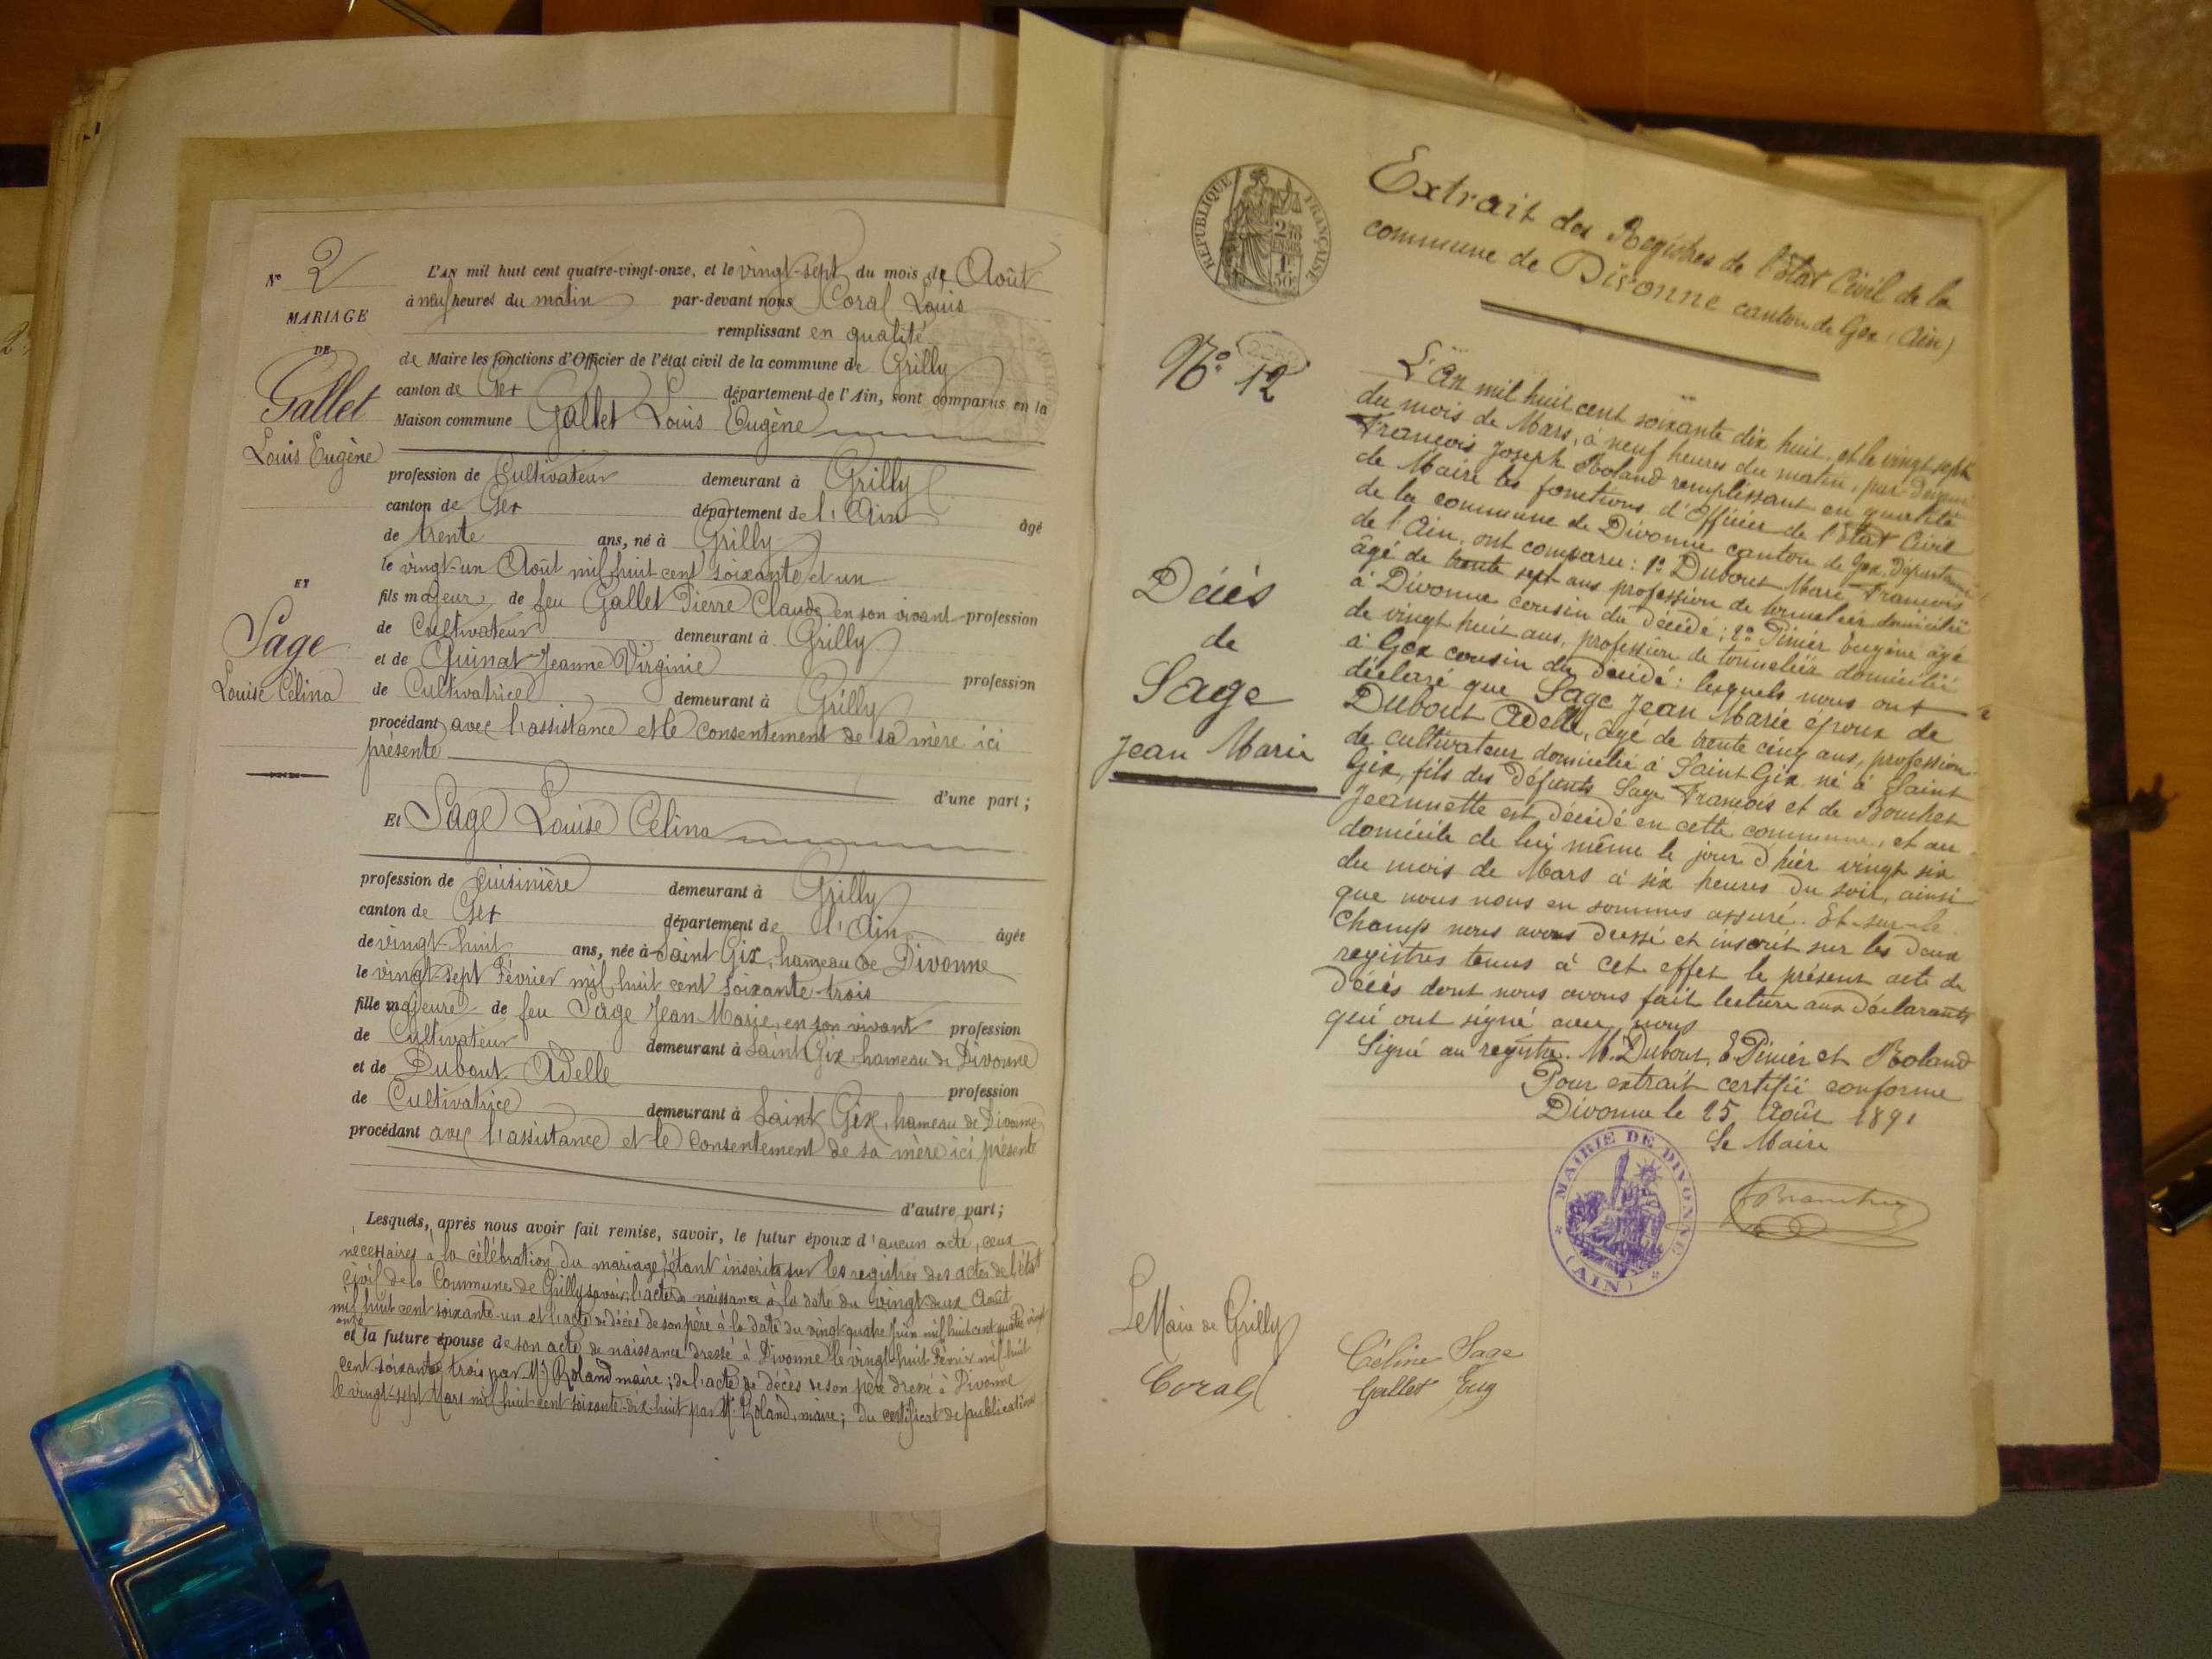 N° 2
MARIAGE
DE
Gallet
Louis Eugène
ET
Sage
Louise Célina
L'AN mil huit cent quatre-vingt-onze, et le vingt-sept du mois de Août
à neuf heures du matin par-devant nous Coral Louis
remplissant en qualité
de Maire les fonctions d'Officier de l'état civil de la commune de Grilly
canton de Gex département de l'Ain, sont comparus en la
Maison commune Gallet Louis Eugène
profession de Cultivateur demeurant à Grilly
canton de Gex département de l'Ain âgé
de trente ans, né à Grilly
le vingt-un Août mil huit cent soixante et un
fils majeur de feu Gallet Pierre Claude en son vivant profession
de Cultivateur demeurant à Grilly
et de Guinat Jeanne Virginie profession
de Cultivatrice demeurant à Grilly
procédant avec l'assistance et le consentement de sa mère ici
présente
d'une part ;
Et Sage Louise Célina
profession de cuisinière demeurant à Grilly
canton de Gex département de l'Ain âgée
de vingt-huit ans, née à Saint Gix, hameau de Divonne
le vingt-sept Février mil huit cent soixante-trois
fille majeure de feu Sage Jean Marie, en son vivant profession
de Cultivateur demeurant à Saint Gix hameau de Divonne
et de Dubout Adelle profession
de Cultivatrice demeurant à Saint Gix, hameau de Divonne
procédant avec l'assistance et le consentement de sa mère ici présente
d'autre part ;
Lesquels, après nous avoir fait remise, savoir, le futur époux d'aucun acte, ceux
nécessaires à la célébration du mariage étant inscrits sur les registres des actes de l'état
civil de la Commune de Grilly savoir: l'acte de naissance à la date du vingt-deux Août
mil huit cent soixante-un et l'acte de décès de son père à la date du vingt-quatre Juin mil huit cent quatre vingt
onze
et la future épouse de son acte de naissance dressé à Divonne le vingt-huit Février mil huit
cent soixante trois par Mr Roland maire ; de l'acte de décès de son père dressé à Divonne
le vingt-sept Mars mil huit cent soixante-dix-huit par Mr. Roland, maire ; du certificat de publication
RÉPUBLIQUE FRANÇAISE
Extrait des Registres de l'État Civil de la
commune de Divonne canton de Gex (Ain)
N° 12
Décès
de
Sage
Jean Marie
L'An mil huit cent soixante dix huit, et le vingt sept
du mois de Mars, à neuf heures du matin, par devant
François Joseph Roland remplissant en qualité
de Maire les fonctions d'Officier de l'État Civil
de la commune de Divonne canton de Gex, Département
de l'Ain, ont comparu : 1° Dubout Marie François
âgé de trente sept ans profession de tonnelier domicilié
à Divonne cousin du décédé ; 2° Pinier Eugène âgé
de vingt huit ans, profession de tonnelier domicilié
à Gex cousin du décédé : lesquels nous ont
déclaré que Sage Jean Marie époux de
Dubout Adelle, âgé de trente cinq ans, profession
de cultivateur domicilié à Saint Gix né à Saint
Gix, fils des défunts Sage François et de Bouchet
Jeannette est décédé en cette commune, et au
domicile de lui même le jour d'hier vingt six
du mois de Mars à six heures du soir, ainsi
que nous nous en sommes assuré. Et sur-le-
champ nous avons dressé et inscrit sur les deux
registres tenus à cet effet le présent acte de
décès dont nous avons fait lecture aux déclarants
qui ont signé avec nous
Signé au registre. M. Dubout, E. Pinier et Roland
Pour extrait certifié conforme
Divonne le 25 Août 1891
Le Maire
MAIRIE DE DIVONNE
(AIN)
Le Maire de Grilly
Coral
Céline Sage
Gallet Eug